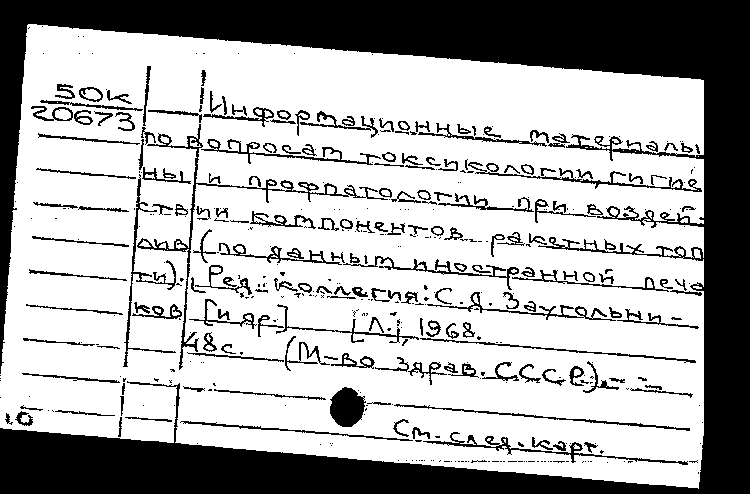 50К
20673
Информационные материалы
по вопросам токсикологии, гигие
ны и профпатологии при воздей-
ствии компонентов ракетных топ
лив (по данным иностранной печа
ти). [Ред. коллегия: С.Д. Заугольни-
ков [и др.] [Л.], 1968.
48с. (М-во здрав. СССР).- -
См. след. карт.
10